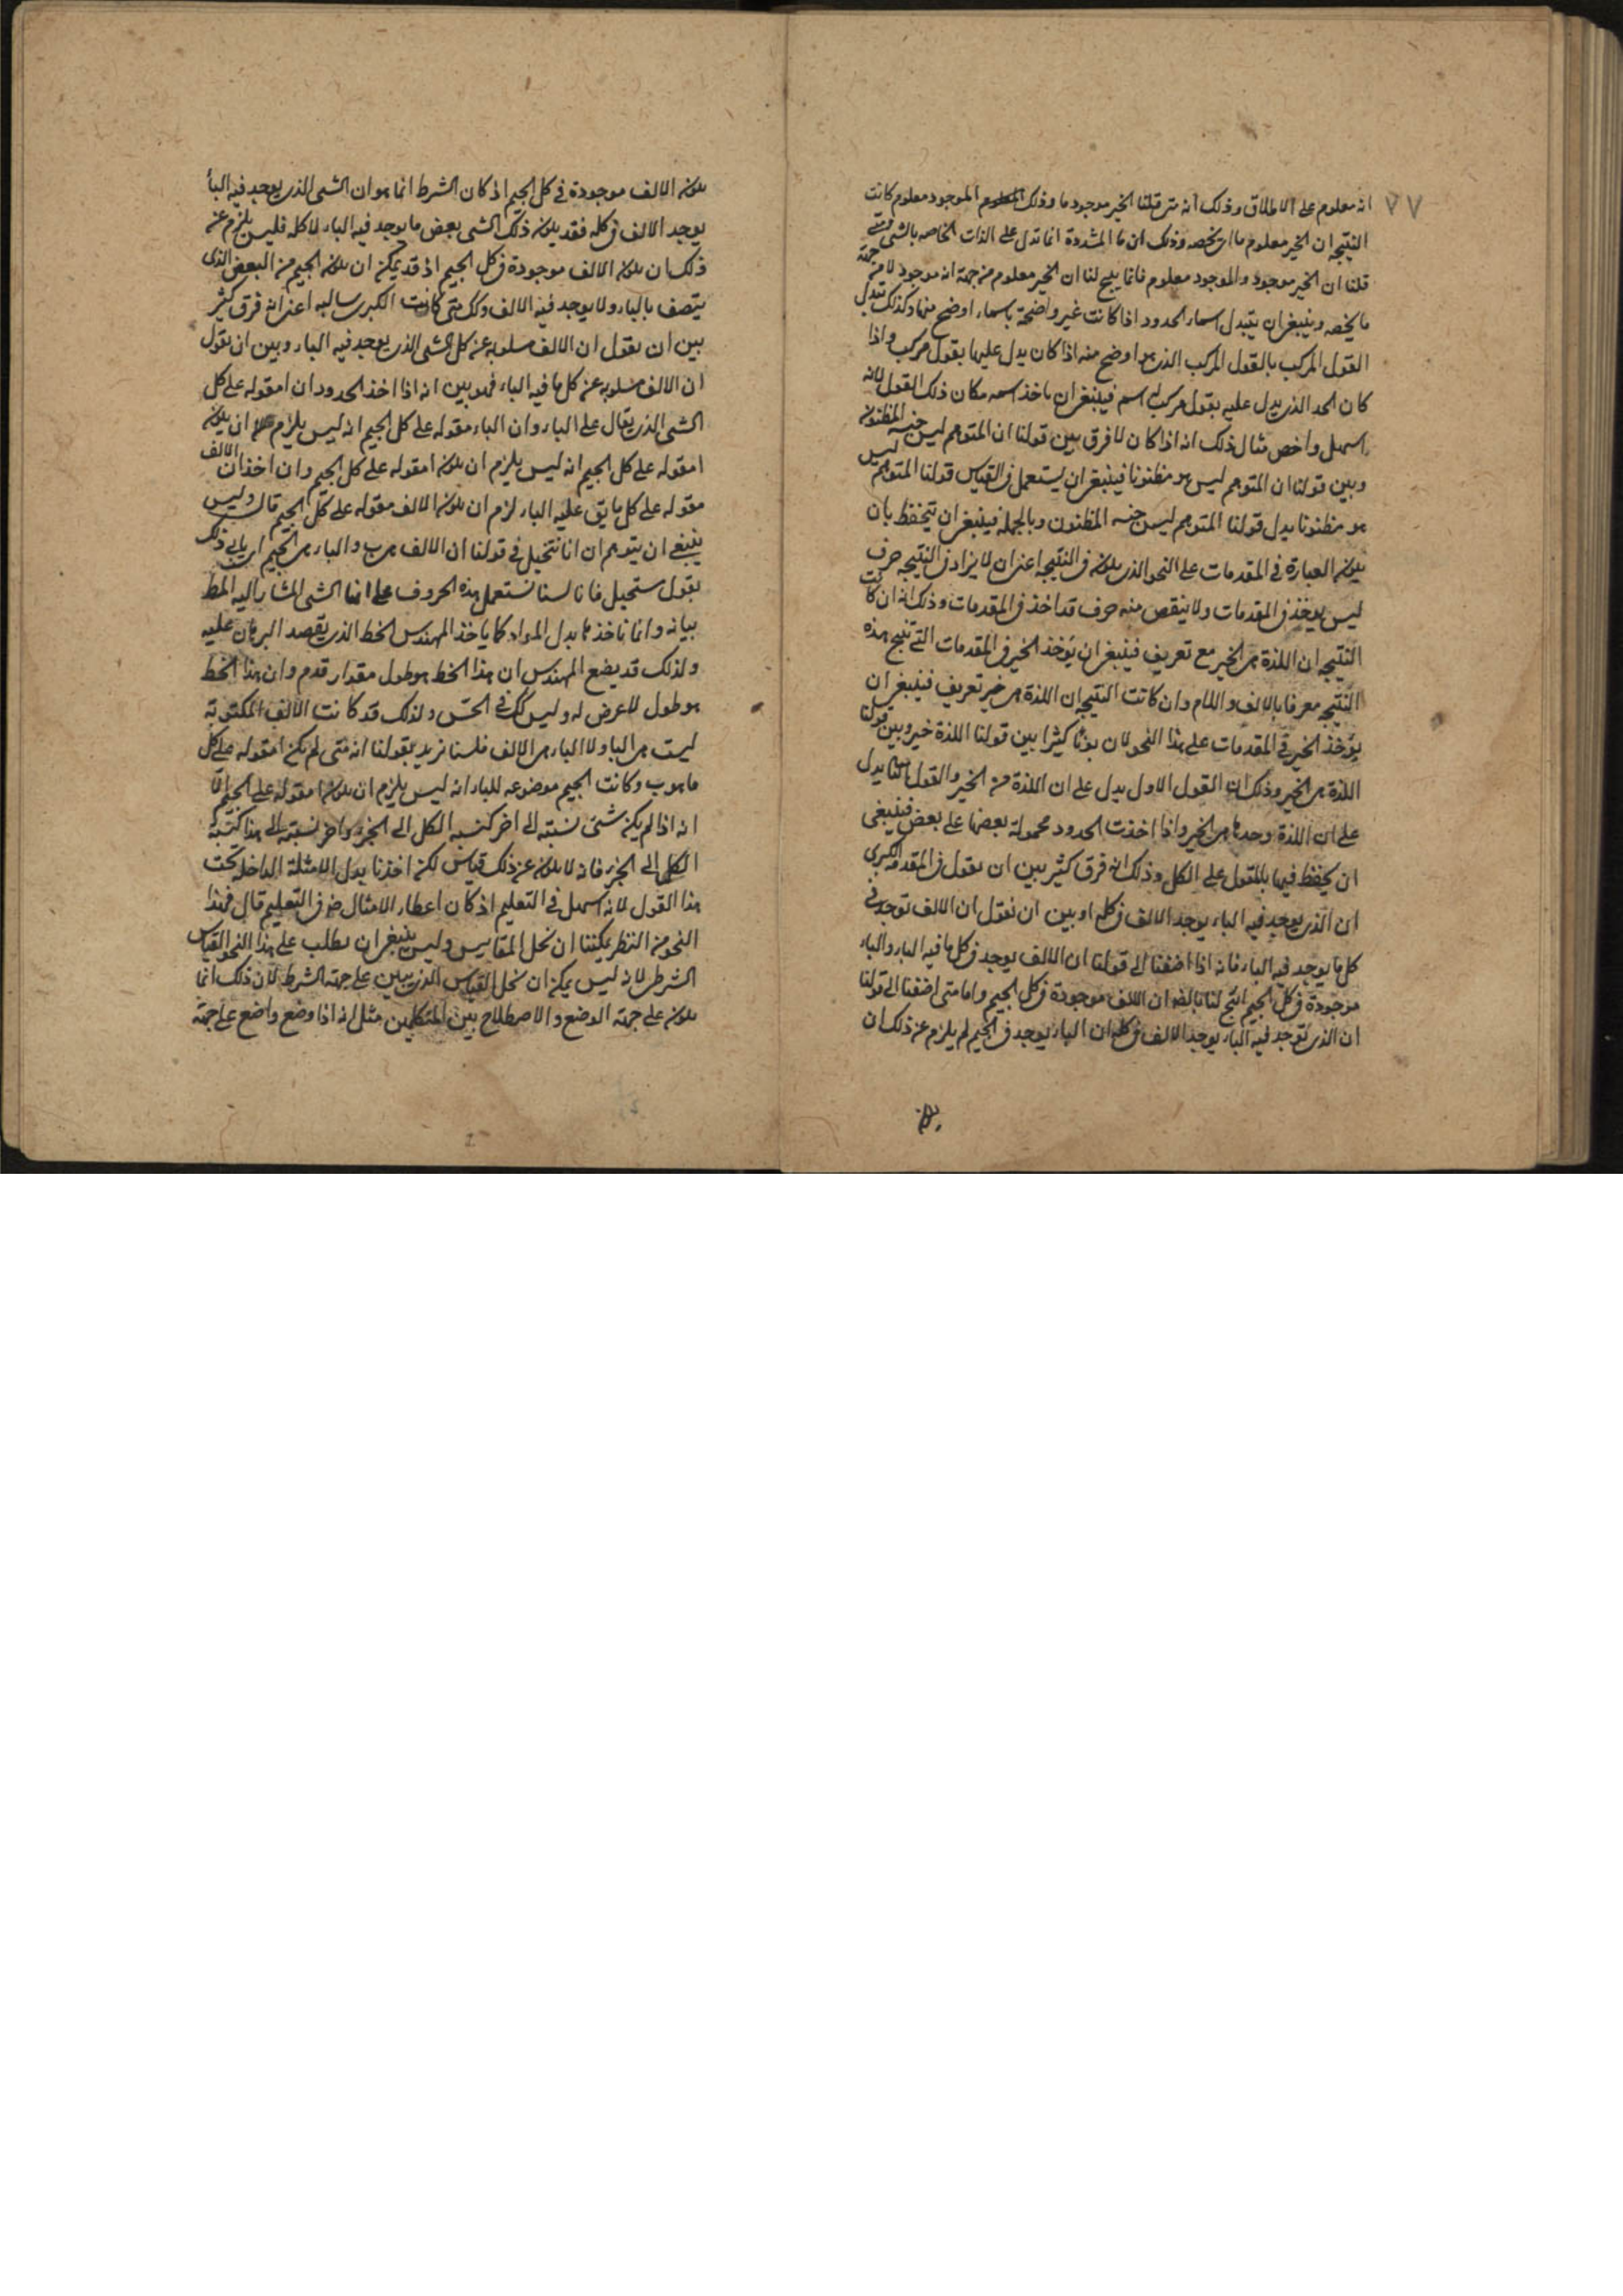 ٧٧
انه معلوم على الاطلاق وذلك انه متى قلنا الخير موجود ما وذلك الموجود معلوم كانت
النتيجه ان الخير معلوم ما اى يخصه وذلك ان ما المشددة انما تدل على الذات الخاصه بالشى ومتى
قلنا ان الخير موجود والموجود معلوم فانما ينتج لنا ان الخير معلوم من جهة انه موجود لا من جهة
ما يخصه وينبغى ان يتبدل اسماء الحدود اذا كانت غير واضحة باسماء اوضح منها وكذلك تبدل
القول المركب بالقول المركب الذى هو اوضح منه اذا كان يدل عليها بقول مركب واذا
كان الحد الذى يدل عليه بقول مركب له اسم فينبغى ان ياخذ اسمه مكان ذلك القول لانه
اسهل واخص مثال ذلك انه اذا كان لا فرق بين قولنا ان المتوهم ليس جنسه المظنون
وبين قولنا ان المتوهم ليس هو مظنونا فينبغى ان يستعمل فى القياس قولنا المتوهم ليس
هو مظنونا بدل قولنا المتوهم ليس جنسه المظنون وبالجملة فينبغى ان يتحفظ بان
يكون العبارة فى المقدمات على النحو الذى يكون فى النتيجه اعنى ان لا يزاد فى النتيجه حرف
ليس يوخذ فى المقدمات ولا ينقص منه حرف قد اخذ فى المقدمات وذلك انه ان كانت
النتيجه ان اللذة هى الخير مع تعريف فينبغى ان يؤخذ الخير فى المقدمات التى تنتج هذه
النتيجه معرفا بالالف واللام وان كانت النتيجه ان اللذة هى خير تعريف فينبغى ان
يؤخذ الخير فى المقدمات على هذا النحو لان بونا كثيرا بين قولنا اللذة خير وبين قولنا
اللذة هى الخير وذلك ان القول الاول يدل على ان اللذة من الخير والقول الثانى يدل
على ان اللذة وحدها هى الخير واذا اخذت الحدود محمولة بعضها على بعض فينبغى
ان يحفظ فيها بالمقول على الكل وذلك انه فرق كثير بين ان يقول فى المقدمة الكبرى
ان الذى يوجد فيه الباء يوجد الالف فى كله او بين ان نقول ان الالف توجد فى
كل ما يوجد فيه الباء فانه اذا اضفنا الى قولنا ان الالف يوجد فى كل ما فيه الباء والباء
موجودة فى كل الجيم انتج لنا ان الالف موجودة فى كل الجيم واما متى اضفنا الى قولنا
ان الذى توجد فيه الباء يوجد الالف فى كله ان الباء يوجد فى الجيم لم يلزم عن ذلك ان
يكون الالف موجودة فى كل الجيم اذ كان الشرط انما هو ان الشى الذى يوجد فيه الباء
يوجد الالف فى كله فقد يكون ذلك الشى بعض ما يوجد فيه الباء لا كله فليس يلزم عن
ذلك ان يكون الالف موجودة فى كل الجيم اذ قد يمكن ان يكون الجيم من البعض الذى
يتصف بالباء ولا يوجد فيه الالف وكك متى كانت الكبرى سالبه اعنى انه فرق كثير
بين ان نقول ان الالف مسلوبة عن كل الشى الذى يوجد فيه الباء وبين ان نقول
ان الالف مسلوبة عن كل ما فيه الباء فهو بين انه اذا اخذ الحدود ان ا مقوله على كل
الشى الذى يقال على الباء وان الباء مقوله على كل الجيم انه ليس يلزم ان يكون
ا مقوله على كل الجيم انه ليس يلزم ان يكون ا مقوله على كل الجيم وان اخذ ان الالف
مقوله على كل ما يق عليه الباء لزم ان يكون الالف مقوله على كل الجيم قال وليس
ينبغى ان يتوهم ان انا نتخيل فى قولنا ان الالف هى ب والباء هى الجيم ذلك
بقول مستحيل فانا لسنا نستعمل هذه الحروف على انها الشى المشار اليه المط
بيانه وانما ناخذها بدل المواد كما ياخذ المهندس الخط الذى يقصد البرهان عليه
ولذلك قد يضع المهندس ان هذا الخط هو طول مقدار قدم وان هذا الخط
هو طول لا عرض له وليس كك فى الحس ولذلك قد كانت الالف المكتوبة
ليست هى الباء ولا الباء هى الالف فلسنا نريد بقولنا انه متى لم يكن ا مقوله على كل
ما هو ب وكانت الجيم موضوعه للباء انه ليس يلزم ان يكون ا مقوله على الجيم الا
انه اذا لم يكن شى نسبته الى اخر كنسبة الكل الى الجزء واخر نسبته الى هذا كنسبة
الكل الى الجزء فانه لا يكون عن ذلك قياس لكن اخذنا بدل الامثلة الداخلة تحت
هذا القول لانه اسهل فى التعليم اذ كان اعطاء الامثال ضرف التعليم قال فهذا
النحو من النظر يمكننا ان نحل المقاييس وليس ينبغى ان يطلب على هذا النحو القياس
الشرطى لانه ليس يمكن ان نحل القياس الذى يبين على جهة الشرط لان ذلك انما
يكون على جهة الوضع والاصطلاح بين المتكلمين مثل انه اذا وضع واضع على جهة